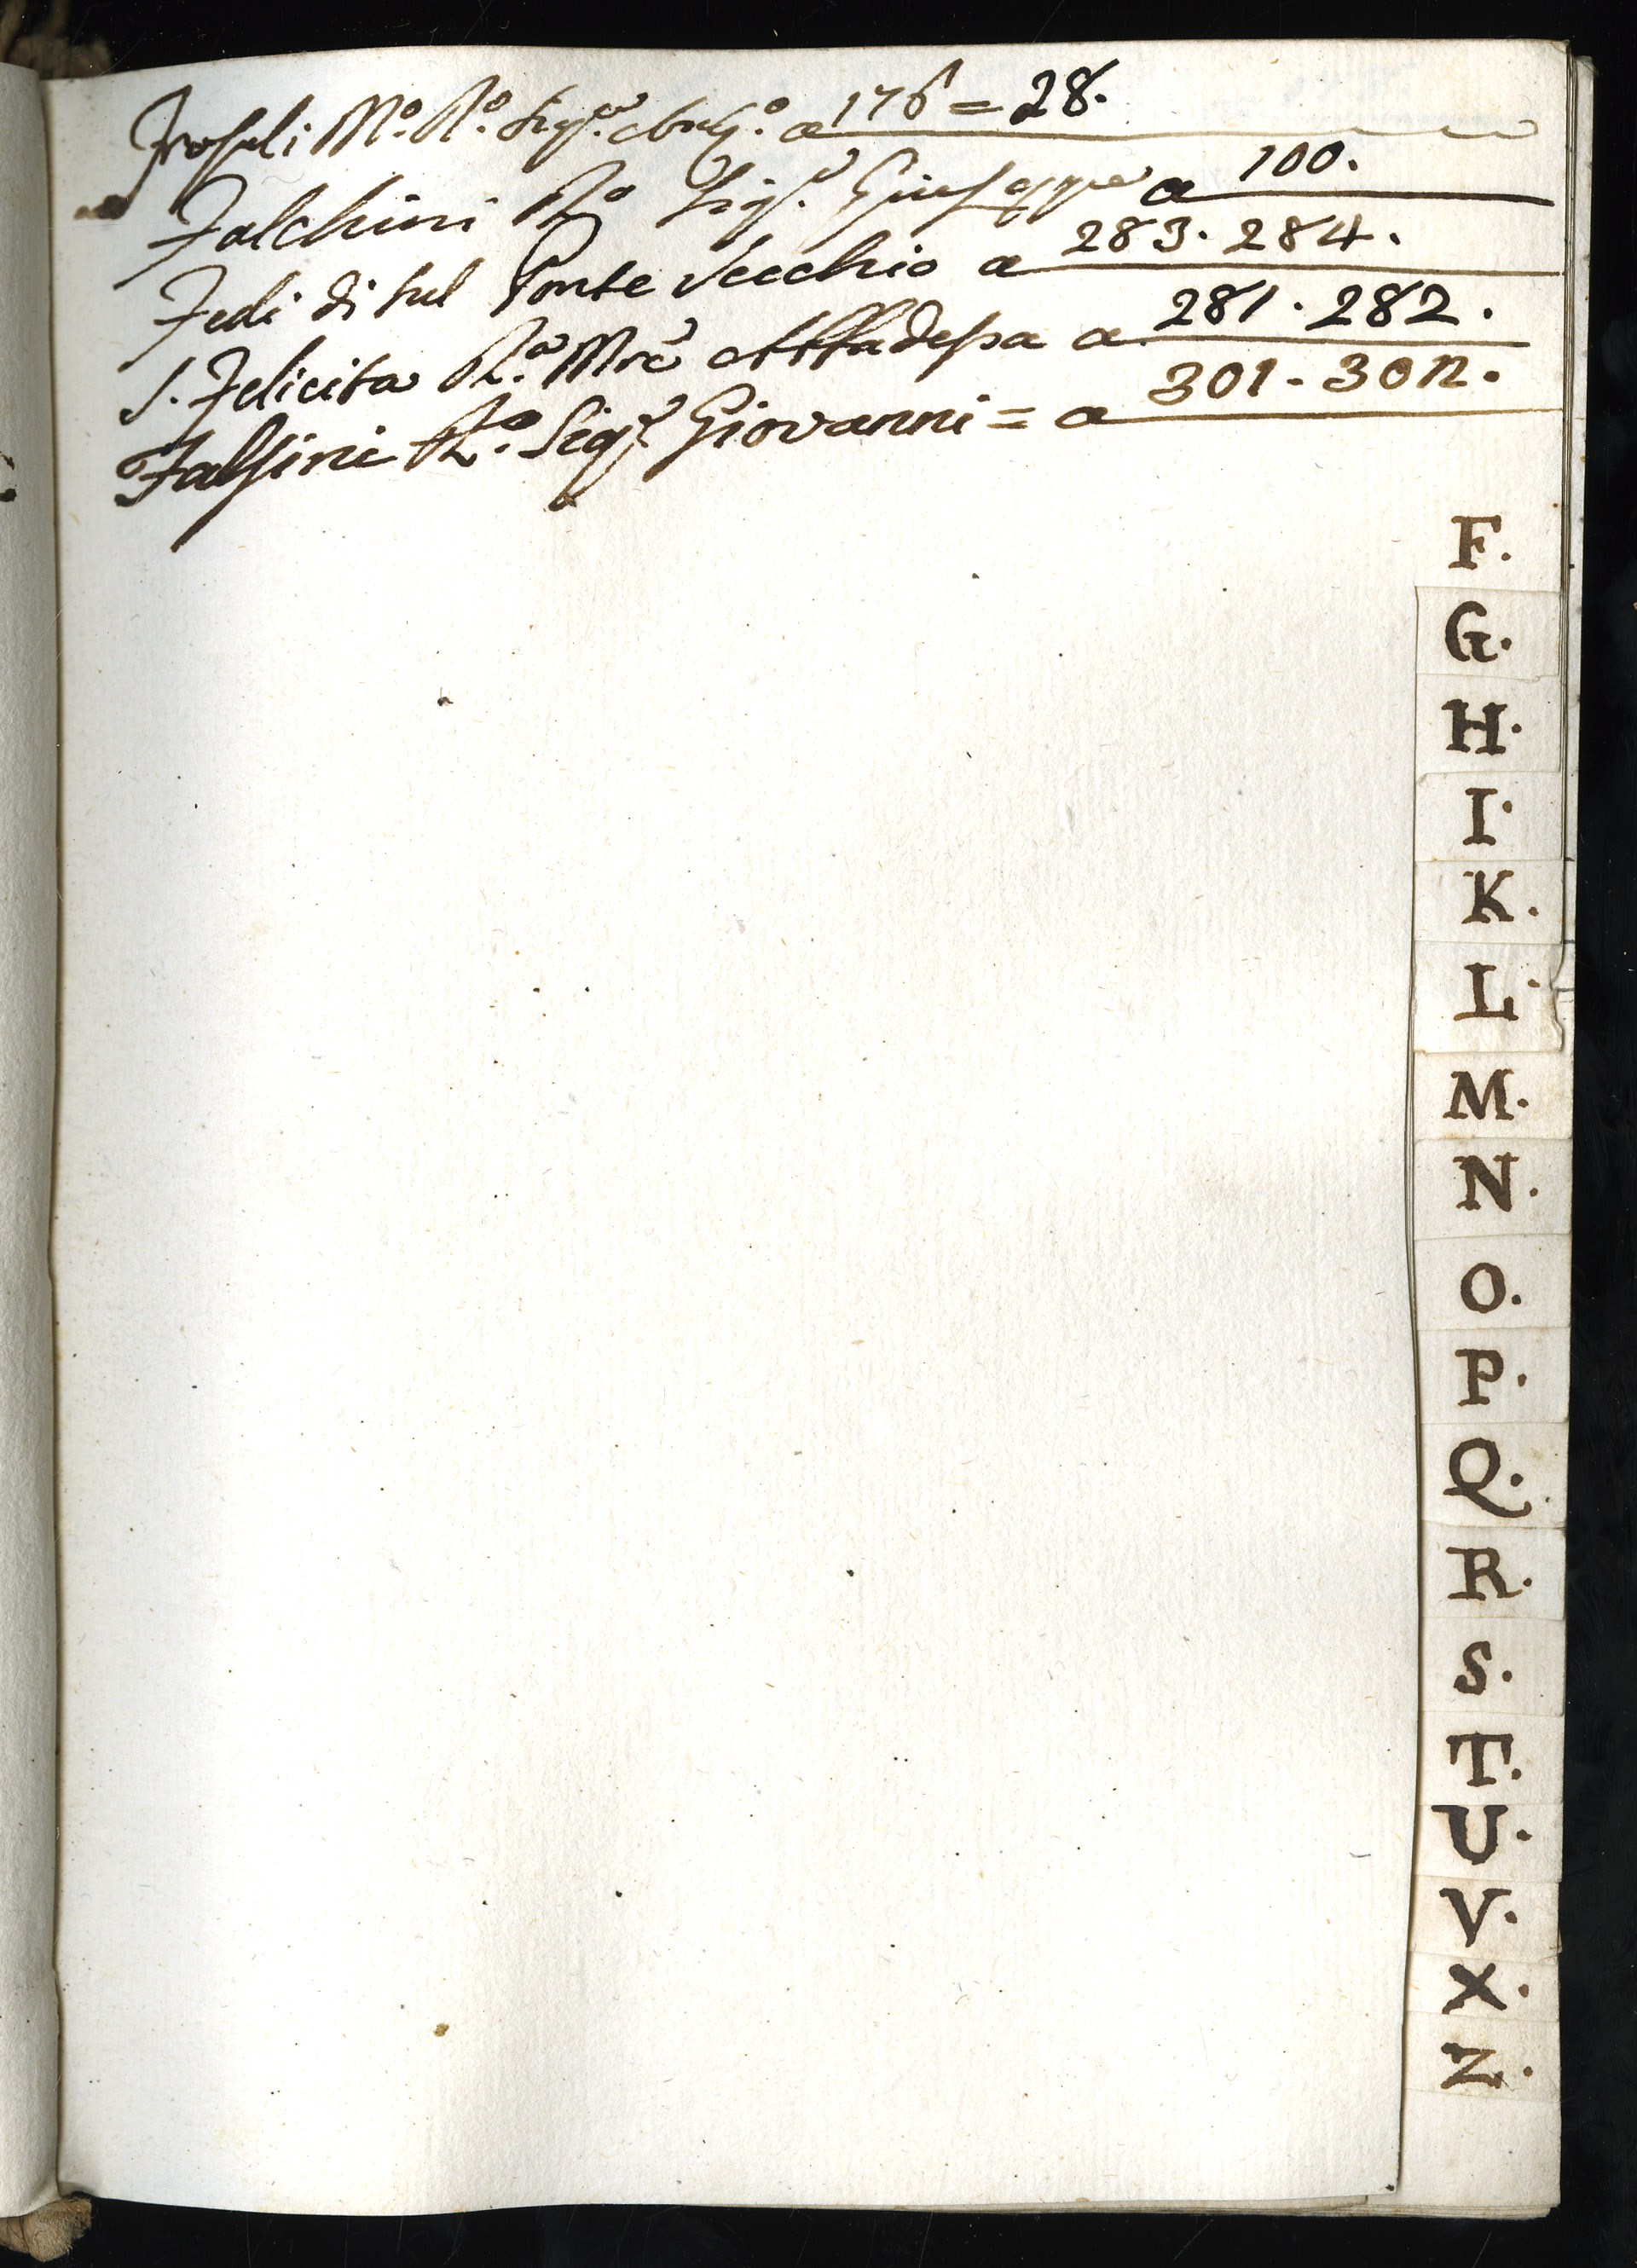 Frosali M.o R.o Sig.re Ant.o a 176 = 28.
Falchini R.o Sig.r Giuseppe a 100.
Fedi di sul Ponte Vecchio a 283. 284.
S. Felicita R.a Mre Abbadessa a 281. 282.
Falsini R.o Sig.r Giovanni = a 301. 302.
F.
G.
H.
I.
K.
L.
M.
N.
O.
P.
Q.
R.
S.
T.
U.
V.
X.
Z.